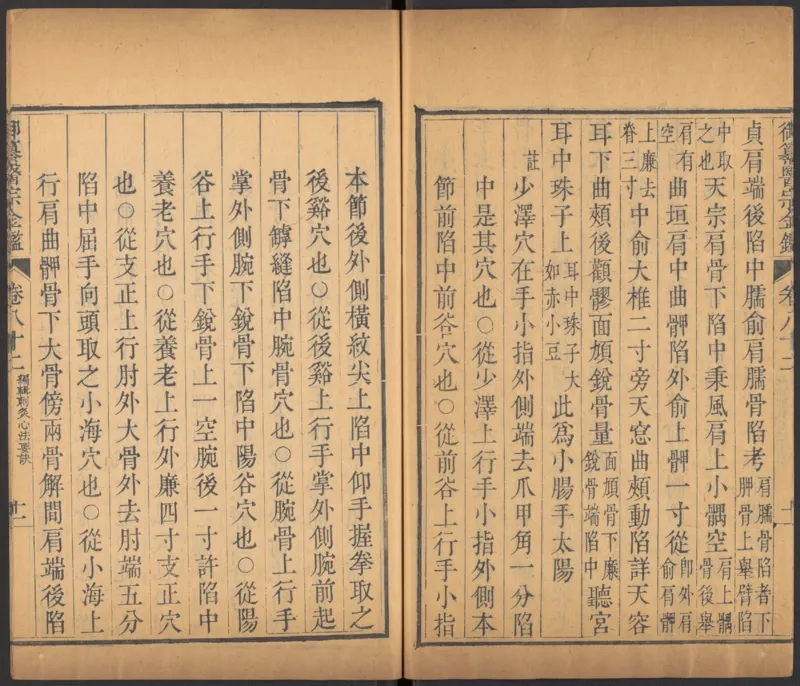 御纂醫宗金鑑 卷八十二
貞肩端後陷中臑俞肩臑骨陷考肩臑骨陷者下胛骨上舉臂陷
中取之也天宗肩骨下陷中秉風肩上小髃空肩上髃骨後舉
肩有空曲垣肩中曲胛陷外俞上胛一寸從即外肩俞肩髆
上廉去脊三寸中俞大椎二寸旁天窓曲頰動陷詳天容
耳下曲頰後顴髎面頄銳骨量面頄骨下廉銳骨端陷中聽宮
耳中珠子上耳中珠子大如赤小豆此為小腸手太陽
註少澤穴在手小指外側端去爪甲角一分陷
中是其穴也○從少澤上行手小指外側本
節前陷中前谷穴也○從前谷上行手小指
本節後外側橫紋尖上陷中仰手握拳取之
後谿穴也○從後谿上行手掌外側腕前起
骨下罅縫陷中腕骨穴也○從腕骨上行手
掌外側腕下銳骨下陷中陽谷穴也○從陽
谷上行手下銳骨上一空腕後一寸許陷中
養老穴也○從養老上行外廉四寸支正穴
也○從支正上行肘外大骨外去肘端五分
陷中屈手向頭取之小海穴也○從小海上
行肩曲胛骨下大骨傍兩骨解間肩端後陷
御纂醫宗金鑑 卷八十二 編輯刺灸心法要訣 十一